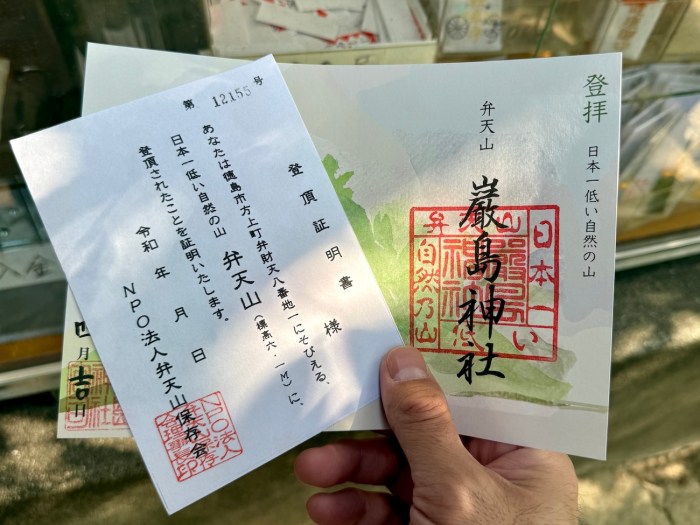 第 12155 号
登頂証明書
様
あなたは徳島市方上町弁財天八番地一にそびえる、
日本一低い自然の山 弁天山 (標高六.一M)に、
登頂されたことを証明いたします。
令和 年 月 日
NPO法人弁天山保存会
登拝 日本一低い自然の山
弁天山
巌島神社
日本一い
自然乃山